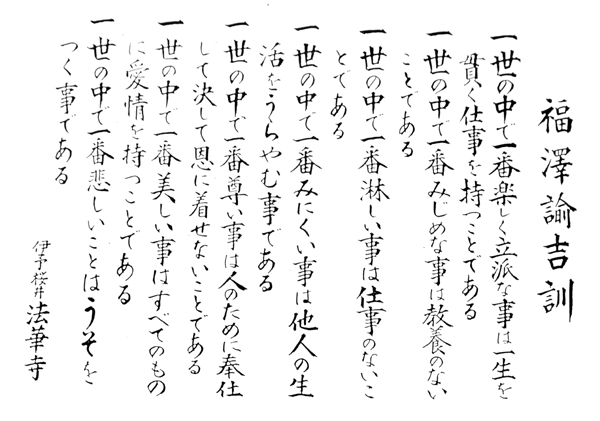 福澤諭吉訓
一世の中で一番楽しく立派な事は一生を
貫く仕事を持つことである
一世の中で一番みじめな事は教養のない
ことである
一世の中で一番淋しい事は仕事のないこ
とである
一世の中で一番みにくい事は他人の生
活をうらやむ事である
一世の中で一番尊い事は人のために奉仕
して決して恩に着せないことである
一世の中で一番美しい事はすべてのもの
に愛情を持つことである
一世の中で一番悲しいことはうそを
つく事である
伊予桜井法華寺